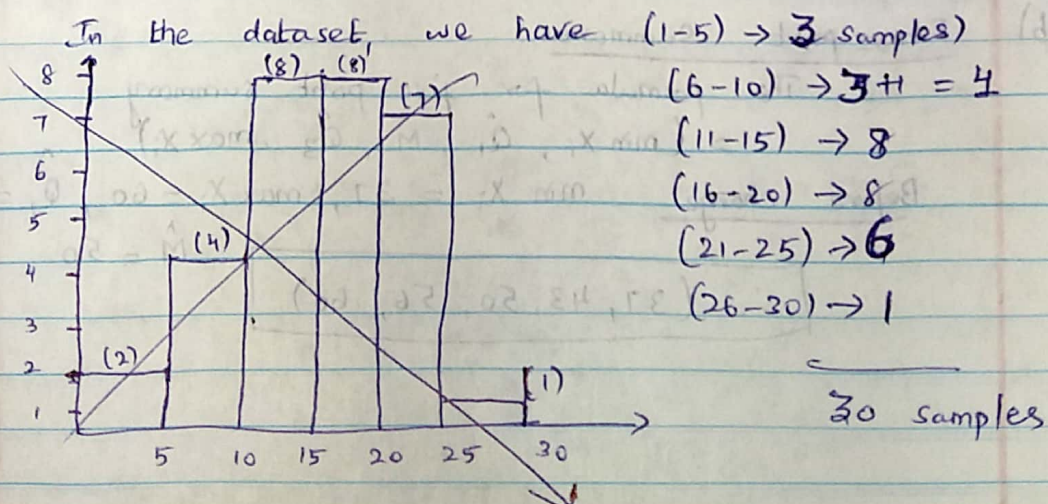 In the dataset, we have (1-5) → 3 samples)
(6-10) → 3+1 = 4
(11-15) → 8
(16-20) → 8
(21-25) → 6
(26-30) → 1
30 samples
8 (8) (8)
7 (7)
6
5
4 (4)
3
2 (2)
1 (1)
5 10 15 20 25 30